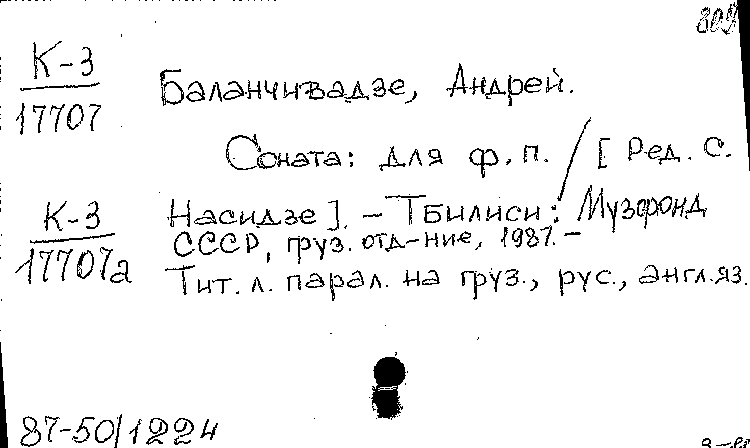 809
К-3
17707
Баланчивадзе, Андрей.
Соната: для ф.п. / [Ред. С.
К-3
17707а
Насидзе]. – Тбилиси: Музфонд
СССР, груз. отд-ние, 1987. –
Тит. л. парал. на груз., рус., англ. яз.
87-50/1224